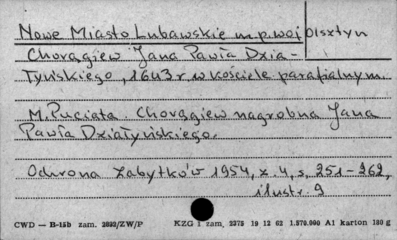 Nowe Miasto Lubawskie m.p. woj Olsztyn
Chorągiew Jana Pawła Dzia-
łyńskiego, 1643 r w kościele parafialnym.
M. Puciata Chorągiew nagrobna Jana
Pawła Działyńskiego.
Ochrona Zabytków 1954, z. 4, s. 251-262,
ilustr. 9
CWD — B-15b zam. 3893/ZW/P KZG 1 zam. 2375 19 12 62 1.570.000 A1 karton 180 g